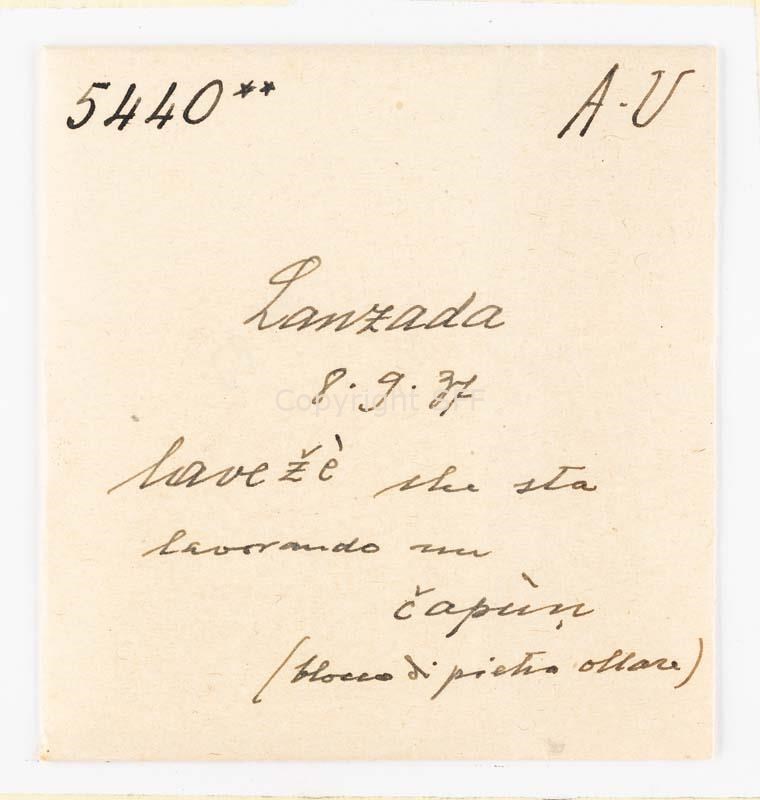 5440** A-U
Lanzada
8.9.37
lavežè che sta
lavorando un
čapùṇ
(blocco di pietra ollare)